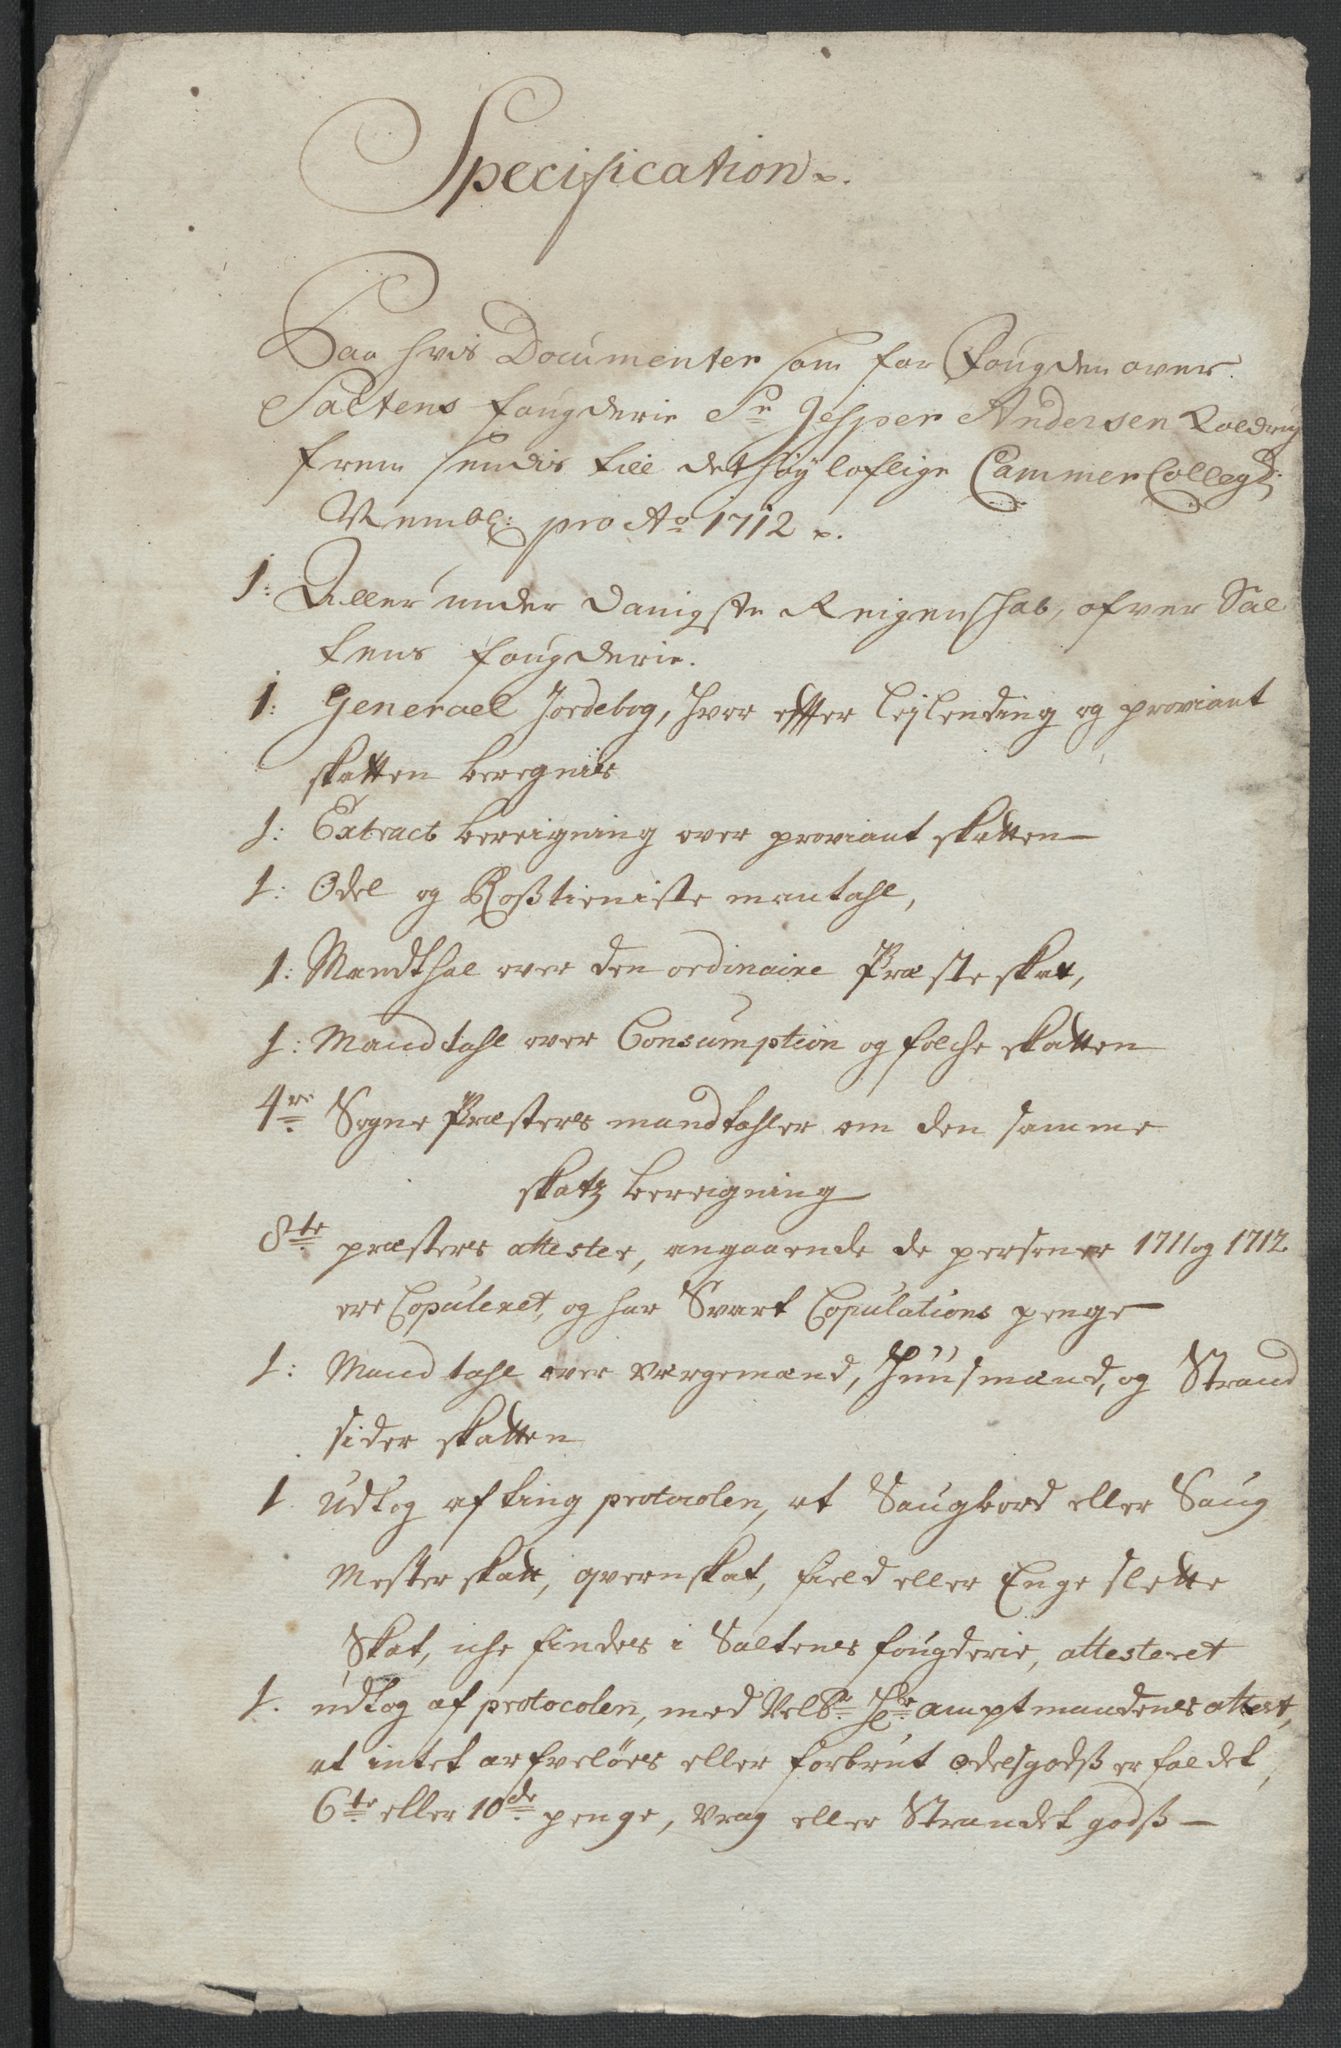 Specification
Paa hvis Documenter som for Fougden over
Saltens fougderie Sr Jesper Andersen
frem sendis till det höy loflige Cammer Collegd:
pro Ao 1712
1: Aller under danigste Reigenschab, ofver Sal
tens fougderie.
1: Generael Jordebog, hvor effter leylending og proviant
skatten beregnis
1: Extract bereigning over proviant skatten
1: Odel og Roßtieniste mantahl,
1: Mandthal over den ordinaire Præste skat,
1: Mandtahl over Consumption og folche skatten
4re Sogne Præsters mandtahler om den samme
skatz bereigning
8te præsters attester, angaaende de personer 1711 og 1712
ere Copuleret, og har Svart Copulations penge
1: Mandtahl over vergemænd, Huusmænd, og Strand
sider skatten
1 Udtog af ting protocolen, at Saugbord eller Saug
Mester skatt, qvernskat, field eller Enge slette
Skat, iche findes i Saltens fougderie, attesteret
1. udtog af protocolen, med VelBr. Hr. amptmandens attest,
at intet arfveløes eller forbrut odelsgodß er faldet,
6te eller 10de penge, vrag eller Strandet godß